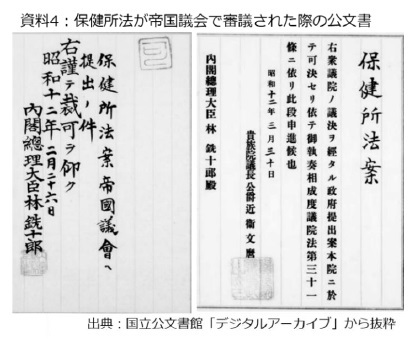 資料4：保健所法が帝国議会で審議された際の公文書
保健所法案
右衆議院ノ議決ヲ經タル政府提出案本院ニ於
テ可決セリ依テ御執奏相成度議院法第三十一
條ニ依リ此段申進候也
昭和十二年三月三十日
貴族院議長公爵近衞文麿
内閣總理大臣 林 銑十郎殿
保健所法案帝國議會ヘ
提出ノ件
右謹テ裁可ヲ仰ク
昭和十二年二月二十六日
内閣總理大臣林銑十郎
出典：国立公文書館「デジタルアーカイブ」から抜粋